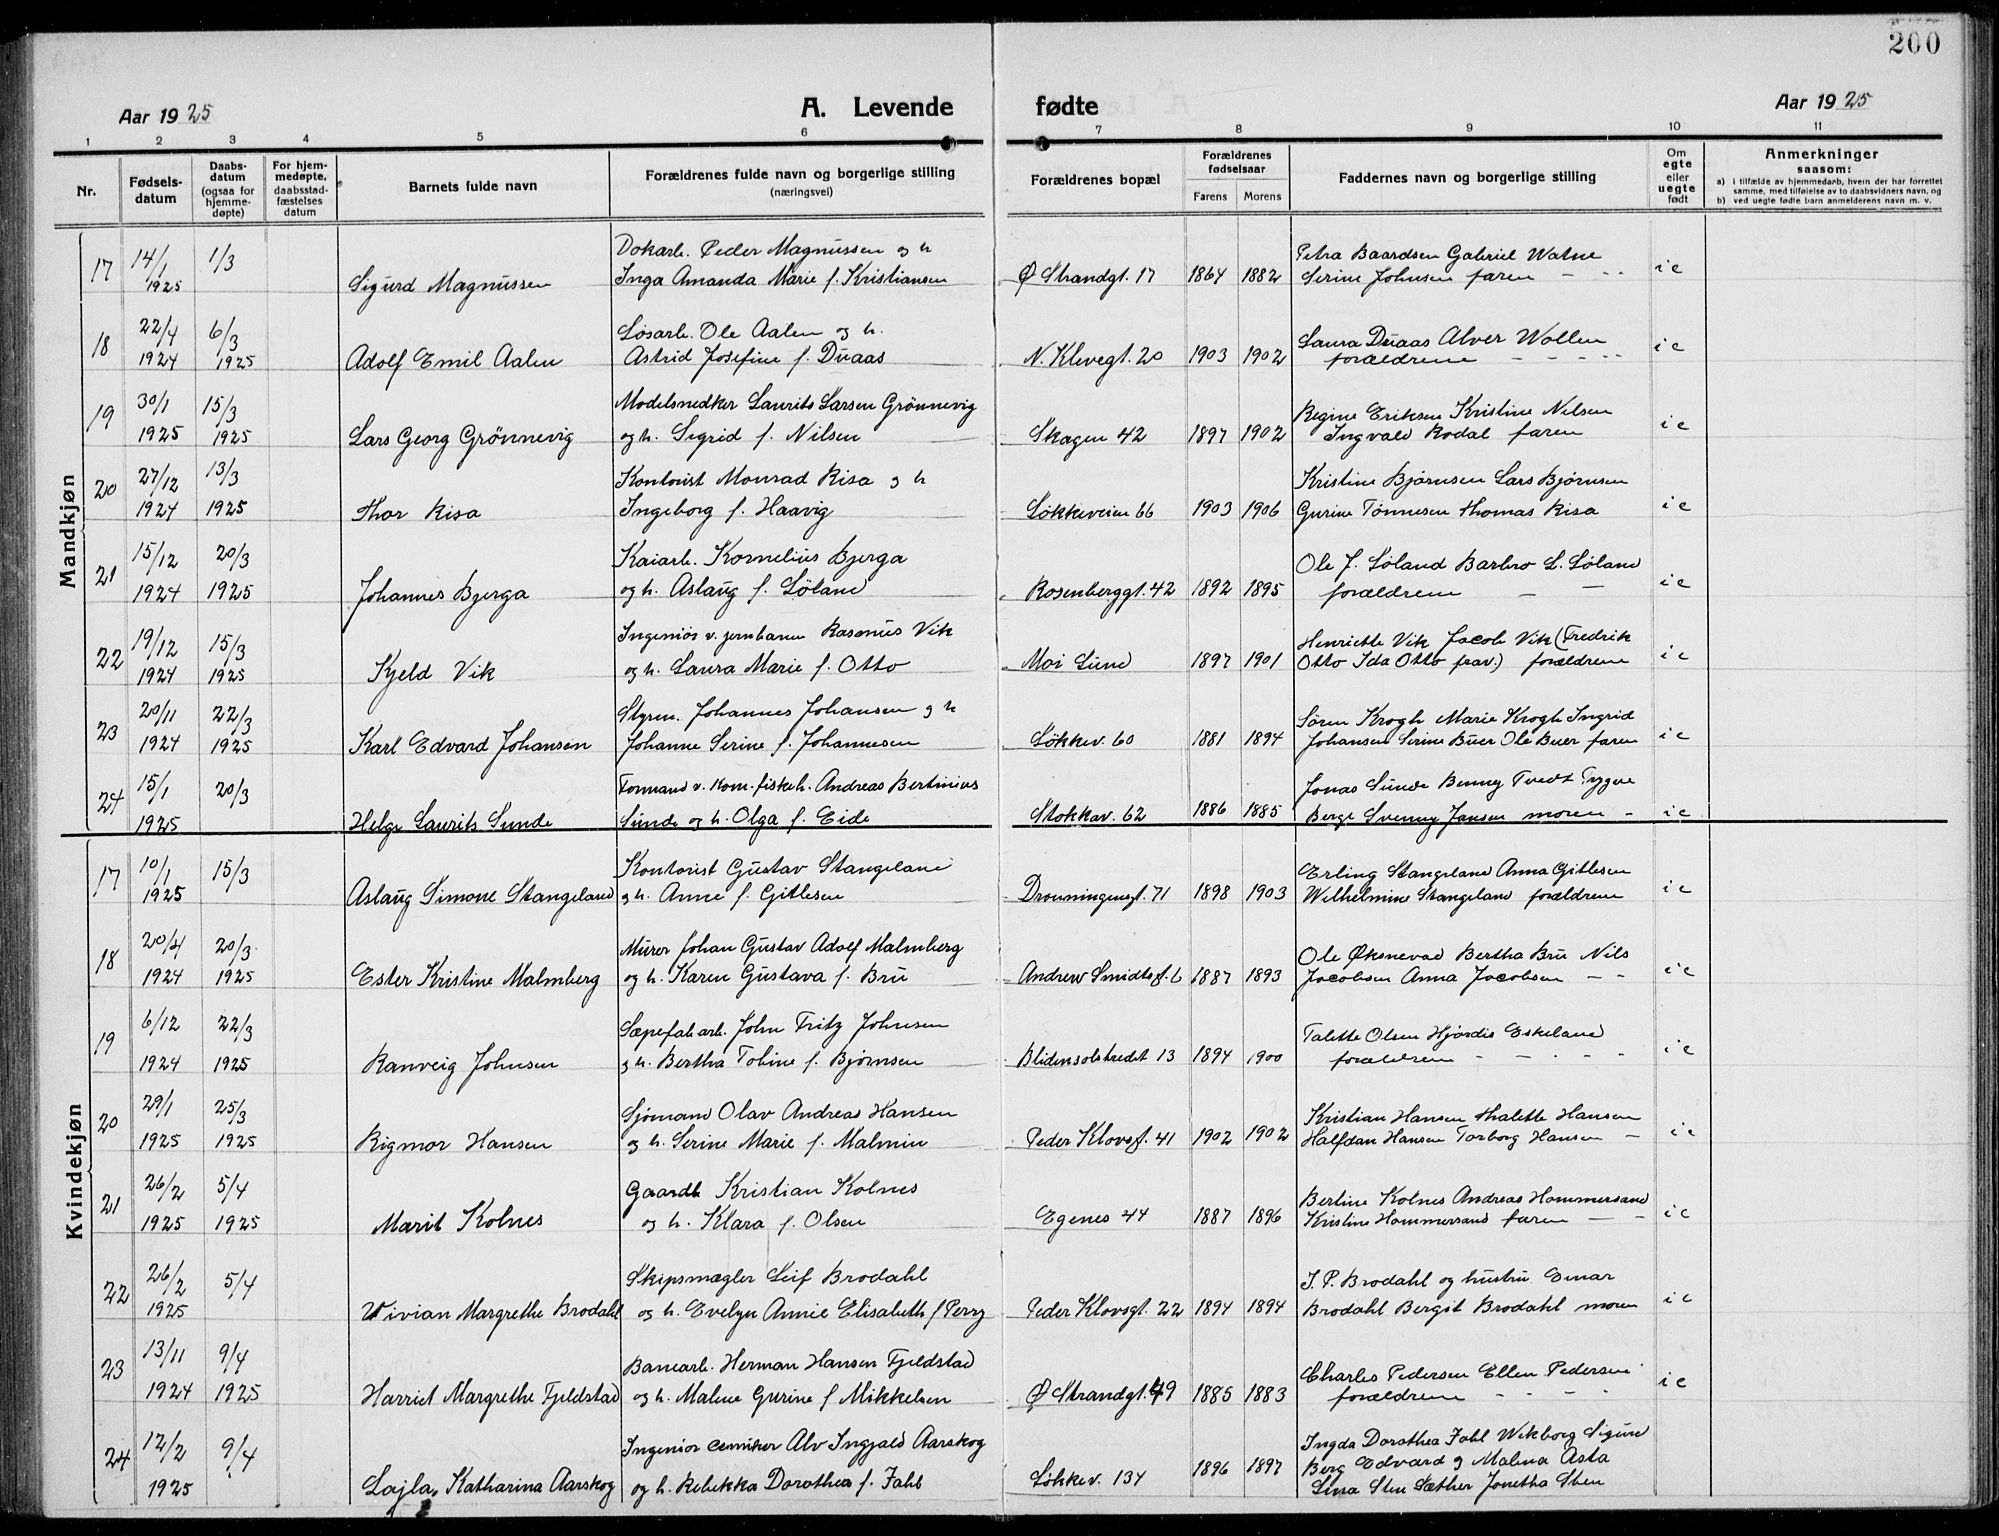 200
Aar 1925
A. Levende fødte
Aar 1925
1 2 3 4 5 6 7 8 9 10 11
Nr.
Fødsels-
datum
Daabs-
datum
(ogsaa for
hjemme-
døpte)
For hjem-
medøpte,
daabsstad-
fæstelses
datum
Barnets fulde navn
Forældrenes fulde navn og borgerlige stilling
(næringsvei)
Forældrenes bopæl
Forældrenes
fødselsaar
Farens Morens
Faddernes navn og borgerlige stilling
Om
egte
eller
uegte
født
Anmerkninger
saasom:
a) i tilfælde av hjemmedaab, hvem der har forrettet
samme, med tilføielse av to daabsvidners navn, og
b) ved uegte fødte barn anmelderens navn m. v.
Mandkjøn
Dokarb. Peder Magnussen og h Petra Baardsen Gabriel Watne
17 14/1 1925 1/3 Sigurd Magnussen Inga Amanda Marie f. Kristiansen Ø Strandgt. 17 1864 1882 Serine Johnsen faren - - - i e
Løsarb. Ole Aalen og h. Laura Duaas Alver Wollen
18 22/4 1924 6/3 1925 Adolf Emil Aalen Astrid Josefine f. Duaas N. Klevegt. 20 1903 1902 forældrene - - - - i e
Modelsnedker Laurits Larsen Grönnevig Regine Eriksen Kristine Nilsen
19 30/1 1925 15/3 1925 Lars Georg Grönnevig og h. Sigrid f. Nilsen Skagen 42 1897 1902 Ingvald Rodal faren i e
Kontorist Monrad Risa og h Kristine Bjørnsen Lars Bjørnsen
20 27/12 1924 13/3 1925 Thor Risa Ingeborg f. Haavig Løkkeveien 66 1903 1906 Gurine Tønnesen Thomas Risa i e
Kaiarb. Kornelius Bjerga Ole J. Løland Barbro L. Løland
21 15/12 1924 20/3 1925 Johannes Bjerga og h. Aslaug f. Løland Rosenberggt. 42 1892 1895 forældrene - - i e
Ingeniør v. jernbanen Rasmus Vik Henriette Vik Jacob Vik (Fredrik
22 19/12 1924 15/3 1925 Kjeld Vik og h. Laura Marie f. Otto Moi Lund 1897 1901 Otto Ida Otto frav.) forældrene i e
Styrm. Johannes Johansen og h Søren Krogh Marie Krogh Ingrid
23 20/11 1924 22/3 1925 Karl Edvard Johansen Johanne Serine f. Johannesen Løkkev. 60 1881 1894 Johansen Serine Buer Ole Buer faren i e
Formand v. kom. fiskeh. Andreas Bertinius Jonas Sunde Benny Tvedt Trygve
24 15/1 1925 20/3 Helge Laurits Sunde Sunde og h. Olga f. Eide Stokkav. 62 1886 1885 Berge Svenny Jansen moren - i e
Kvindekjøn
Kontorist Gustav Stangeland Erling Stangeland Anna Gitlesen
17 10/1 1925 15/3 Aslaug Simone Stangeland og h. Anne f. Gitlesen Dronningensgt. 71 1898 1903 Wilhelmine Stangeland forældrene i e
Murer Johan Gustav Adolf Malmberg Ole Øksnevad Bertha Bru Nils
18 20/4 1924 20/3 1925 Ester Kristine Malmberg og h. Karen Gustava f. Bru Andrew Smidtsgt. 6 1887 1893 Jacobsen Anna Jacobsen - - i e
Sæpefab.arb. John Fritz Johnsen Talette Olsen Hjørdis Eskeland
19 6/12 1924 22/3 1925 Ranveig Johnsen og h. Bertha Tobine f. Bjørnsen Blidensolstredet 13 1894 1900 forældrene - - - - i e
Sjømand Olav Andreas Hansen Kristian Hansen Thalette Hansen
20 29/1 1925 25/3 1925 Rigmor Hansen og h. Serine Marie f. Malmin Peder Klovsgt. 41 1902 1902 Halfdan Hansen Torborg Hansen - i e
Gaardb Kristian Kolnes Bertine Kolnes Andreas Hommersand
21 26/2 1925 5/4 1925 Marit Kolnes og h. Klara f. Olsen Egenes 44 1887 1896 Kristine Hommersand faren - - i e
Skipsmægler Leif Brodahl J. P. Brodahl og hustru Einar
22 26/2 1925 5/4 Vivian Margrethe Brodahl og h. Evelyn Annie Elisabeth f Perry Peder Klovsgt. 22 1894 1894 Brodahl Bergit Brodahl moren i e
Banearb. Herman Hansen Fjeldstad Charles Pedersen Ellen Pedersen
23 13/11 1924 9/4 1925 Harriet Margrethe Fjeldstad og h. Malene Gurine f Mikkelsen Ø Strandgt. 49 1885 1883 forældrene - - - - i e
Ingeniør cemiker Alv Ingjald Aarskog Ingda Dorothea Fahl Wikborg Sigurd
24 12/2 1925 9/4 Lajla Katharina Aarskog og h. Rebekka Dorothea f. Fahl Løkkev. 134 1896 1897 Berg Edvard og Malina Asta
Lina Sten Sæther Jonetha Sten